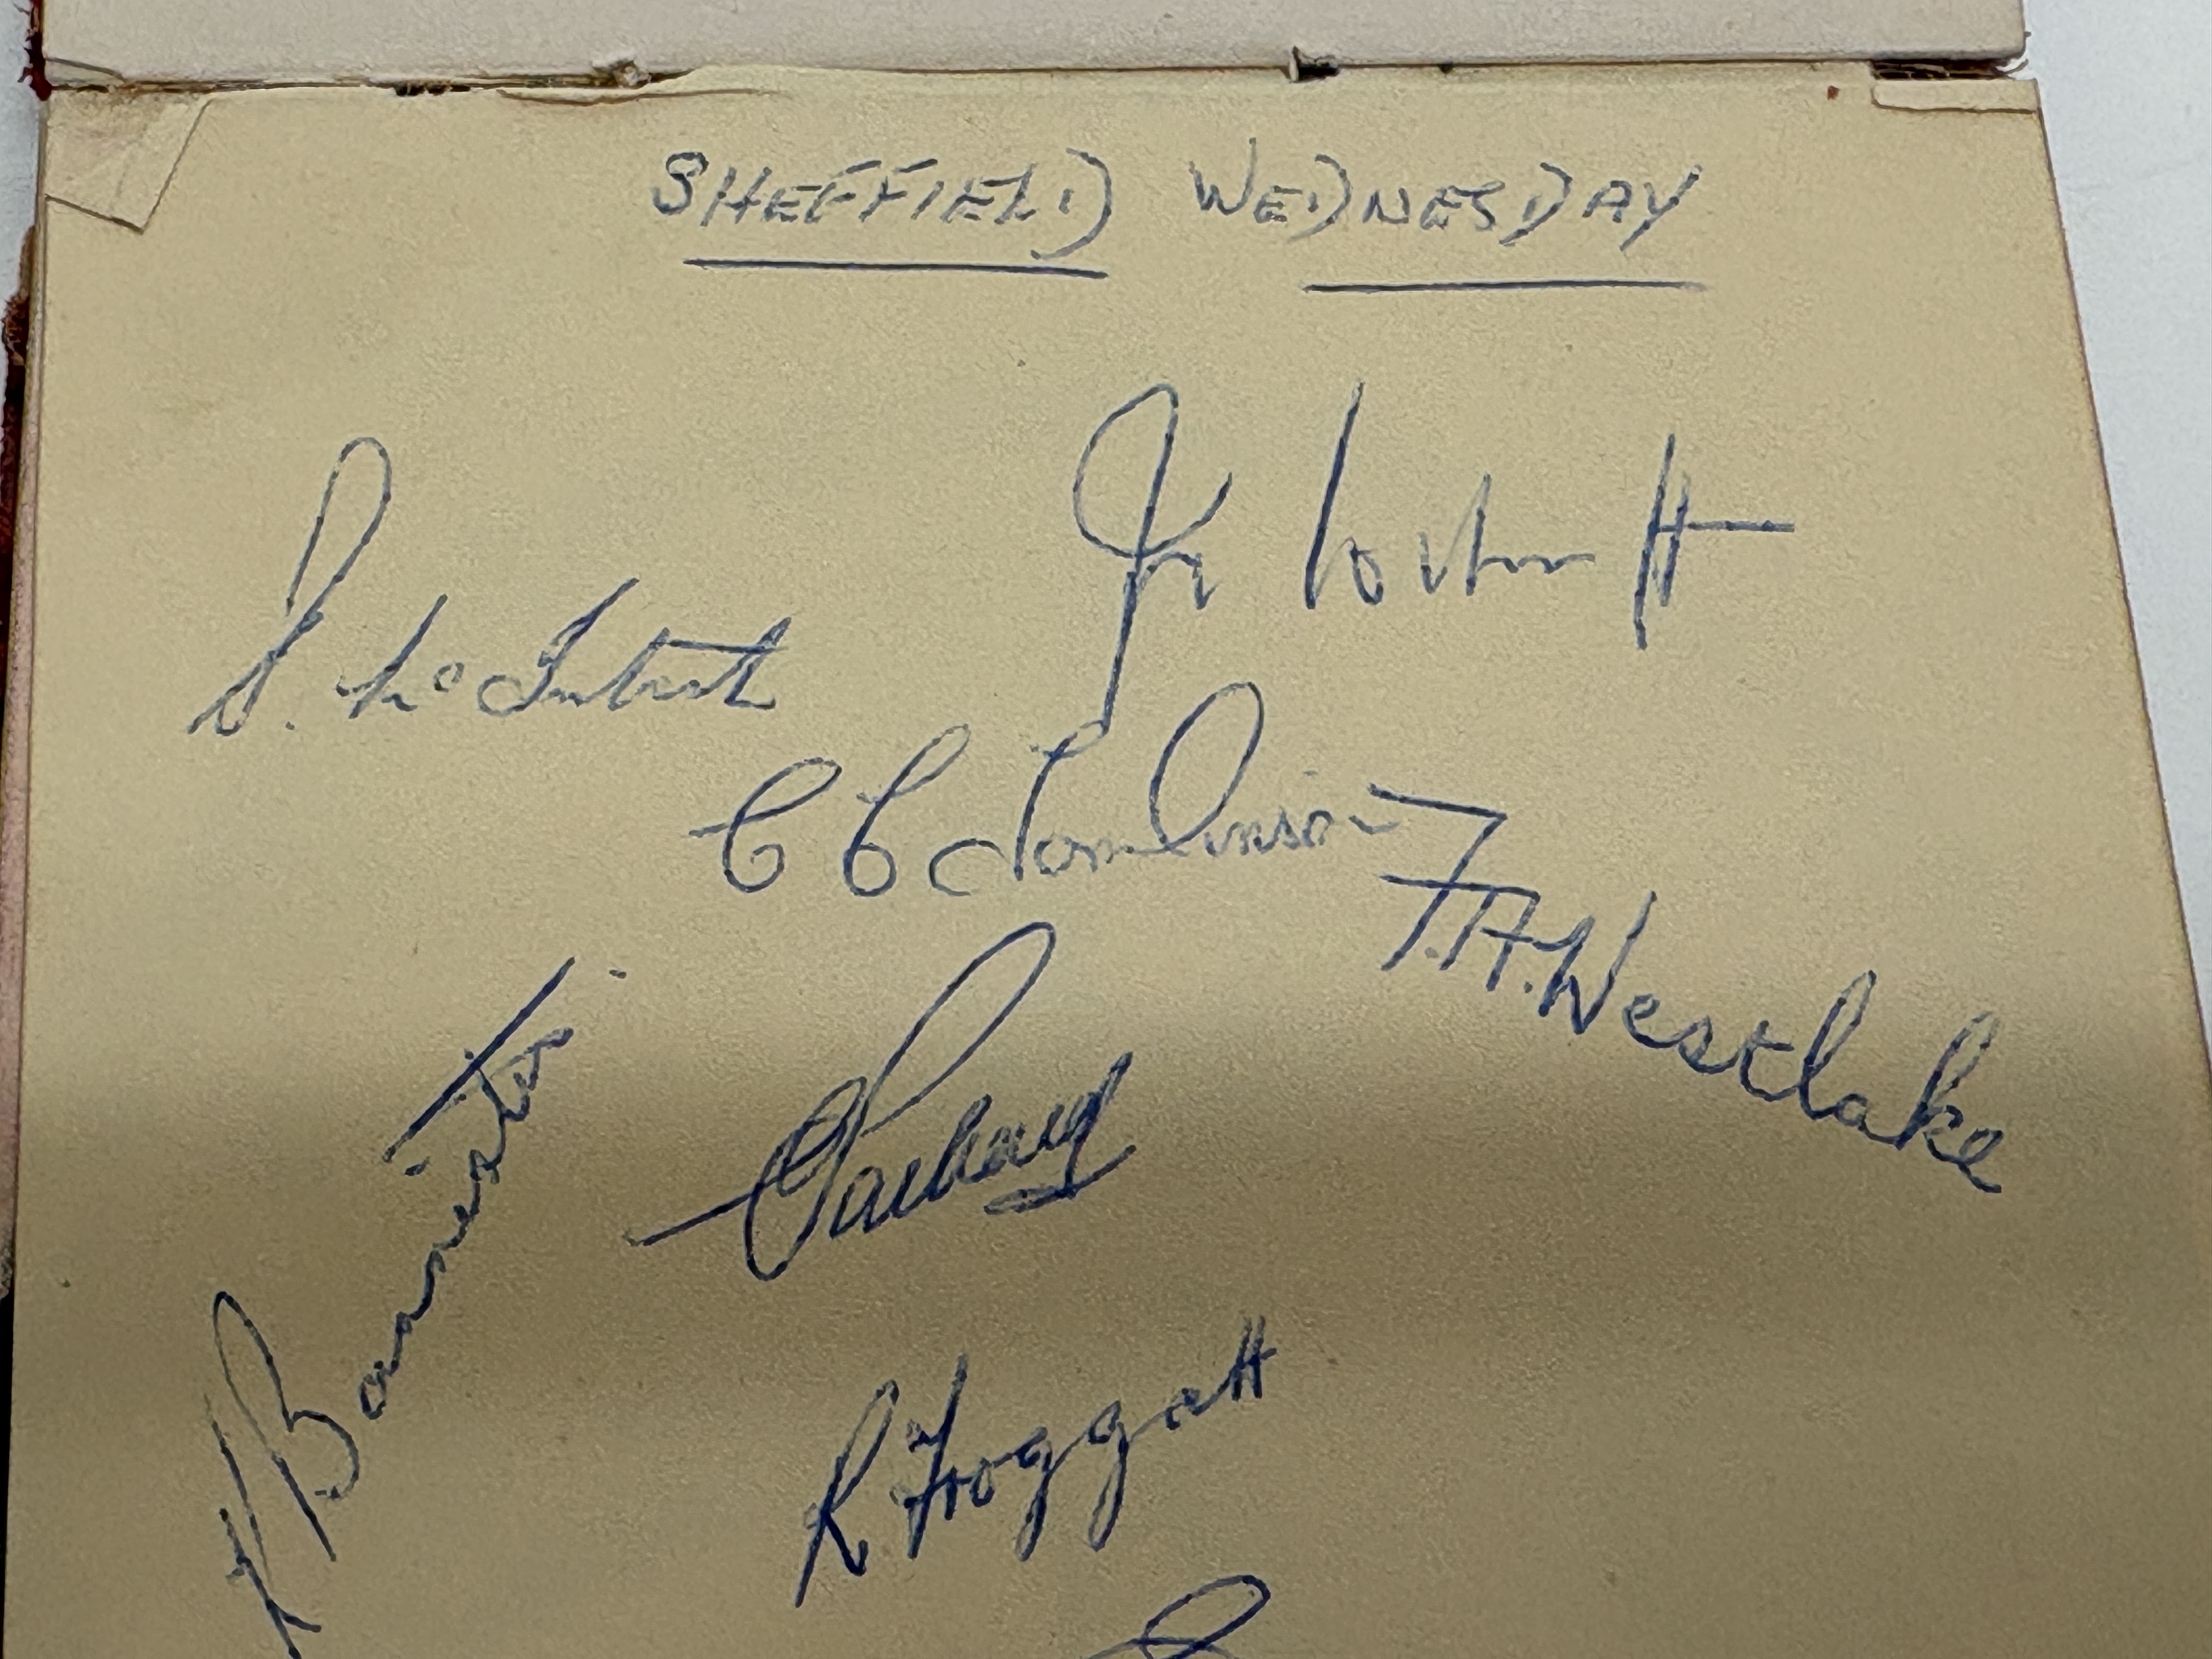 SHEFFIELD WEDNESDAY
D. McIntosh
C C Tomlinson
F.A. Westlake
K Bannister
R Froggatt